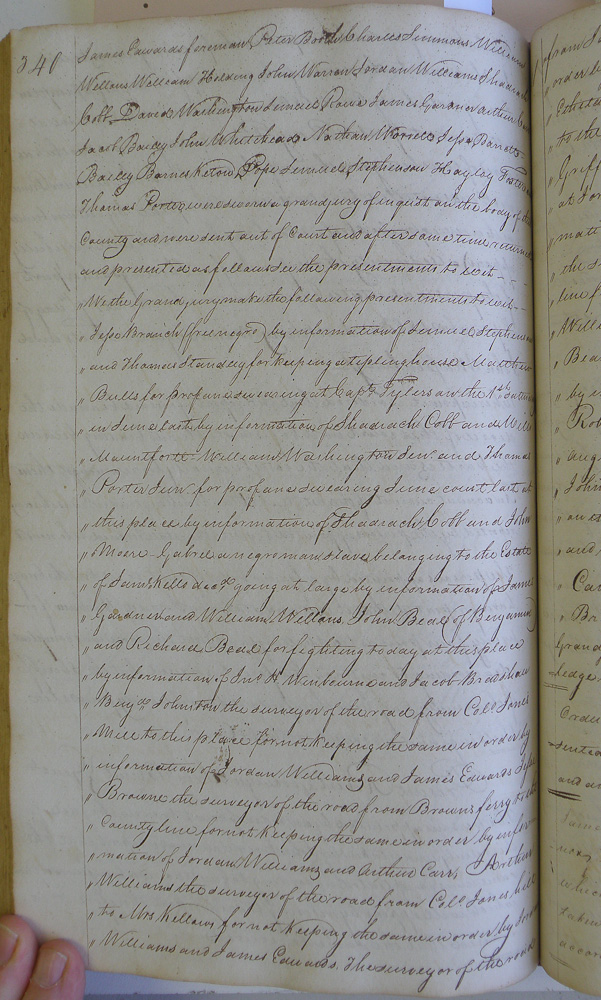 340
James Edwards foreman, Peter Booth Charles Simmons William
Wellons William Holding John Warren Jordan Williams Shadrach
Cobb David Washington Lemuel Rowe James Gardner Arthur
Jacob Bailey John Whitehead Nathan Worrell Jesse Barrett
Bailey Barnes Pope Lemuel Stephenson Hayley
Thomas Porter, were sworn a grand jury of inquest on the body of the
County and were sent out of Court and after some time returned
and presented as follows see the presentments to wit - - -
" We the Grand jury make the following presentments to wit -
" Jesse Braich (free negro) by information of Lemuel Stephenson
" and Thomas Standley for keeping a tipling house Matthew
" Bulls for profane swearing at Capt. Tylers on the 1st
" in June last by information of Shadrach Cobb and Will
" Mountfort William Washington Senr. and Thomas
" Porter Junr. for profane swearing June court last at
" this place by information of Shadrach Cobb and John
" Moore Gabrel a negro man slave belonging to the Estate
" of Saml. Kello decd. going at large by information of James
" Gardner and William Wellons, John Beal (of Benjamin)
" and Richard Beal for fighting to day at this place
" by information of Jno. H Winbourne and Jacob Bradshaw
" Benja. Johnston the surveyor of the road from Colo. Jones
" Mill to this place for not keeping the same in order by
" information of Jordan Williams and James Edwards, Jesse
" Browne the surveyor of the road from Browns ferry to the
" County line for not keeping the same in order by infor
" mation of Jordan Williams and Arthur Carr, Arthur
" Williams the surveyor of the road from Colo. Jones hill
" to Mrs Kellows for not keeping the same in order by Jordan
" Williams and James Edwards. The surveyor of the road